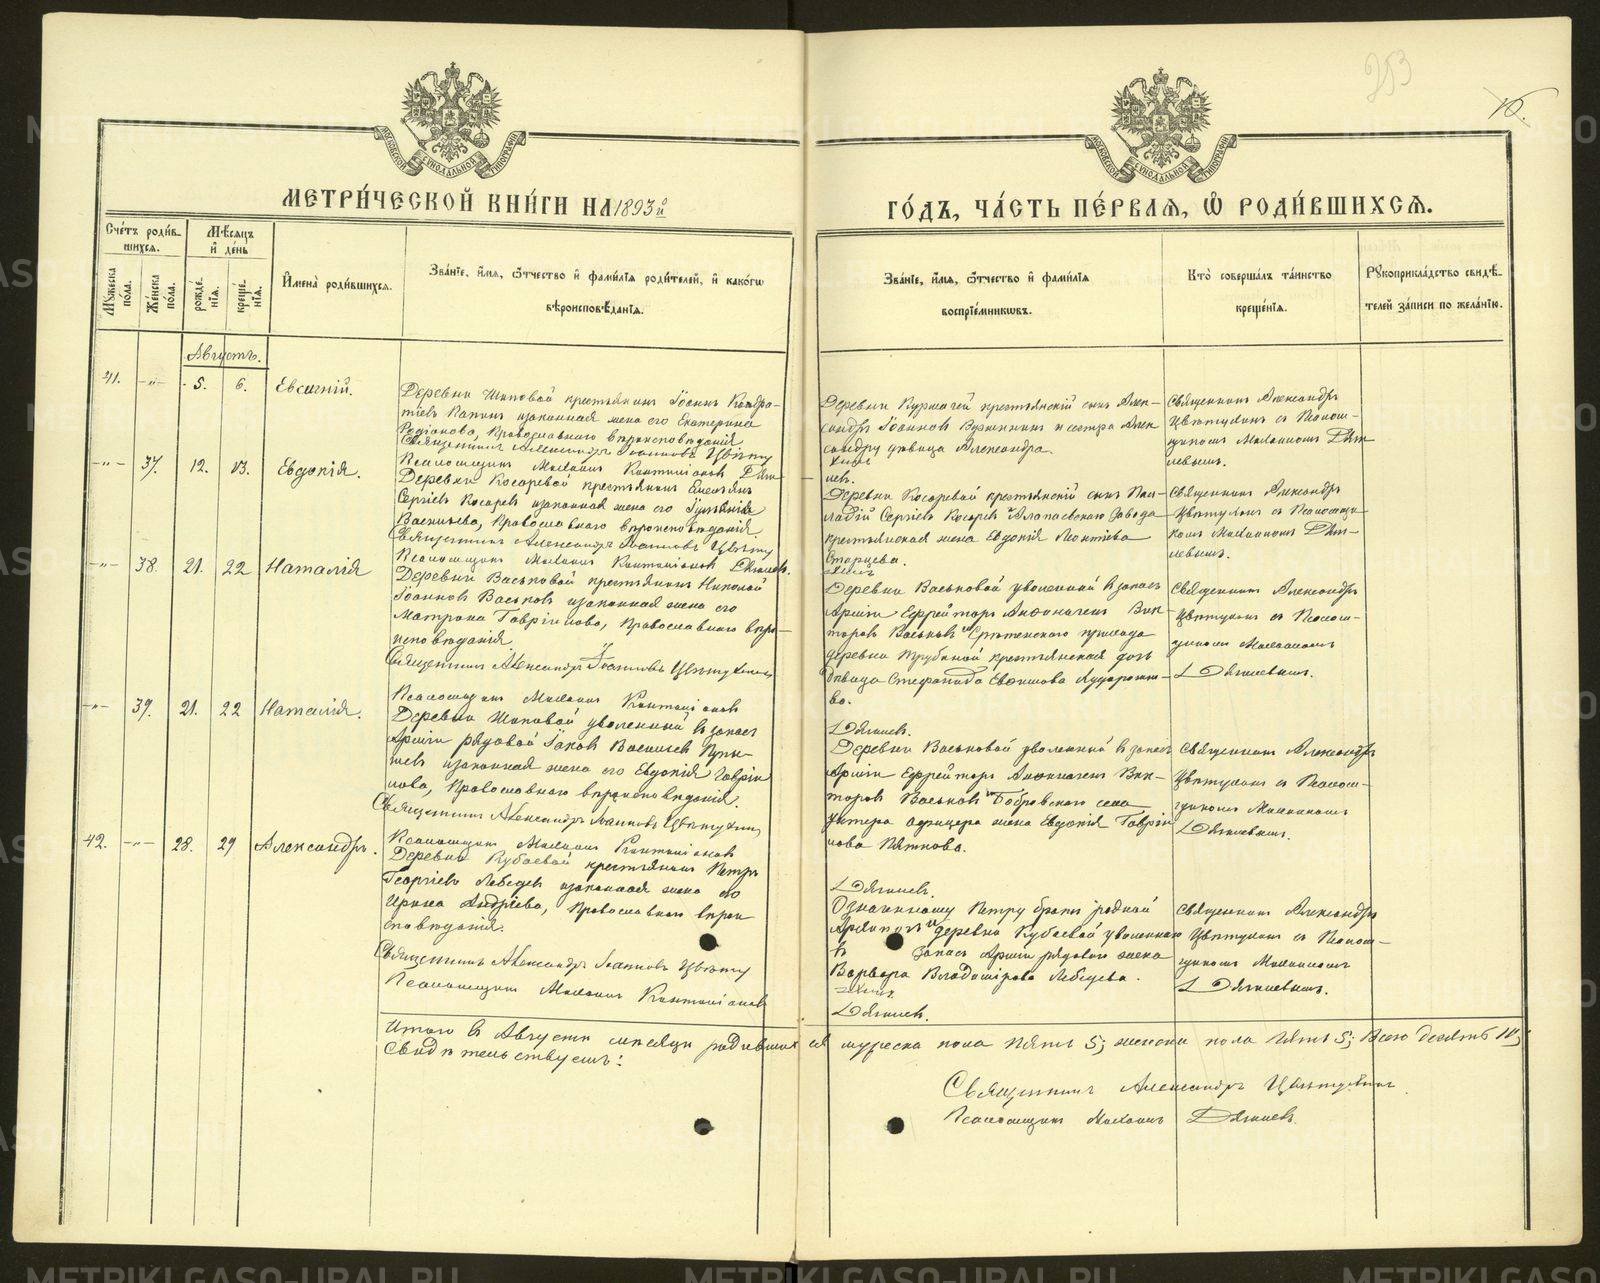 253
16.
МОСКОВСКОЙ СѴНОДАЛЬНОЙ ТИПОГРАФІИ
МОСКОВСКОЙ СѴНОДАЛЬНОЙ ТИПОГРАФІИ
МЕТРИ́ЧЕСКОЙ КНИ́ГИ НА 1893й
ГО́ДЪ, ЧА́СТЬ ПЕ́РВАѦ, Ѡ҆ РОДИ́ВШИХСѦ.
Сче́тъ роди́в-
шихсѧ.
Мꙋ́жеска по́ла.
Же́нска по́ла.
Мѣ́сѧцъ и҆ де́нь
рожде́-нїѧ.
креще́-нїѧ.
И҆мена̀ роди́вшихсѧ.
Зва́нїе, и҆́мѧ, ѻ҆́тчество и҆ фами́лїѧ роди́телей, и҆ како́гѡ
вѣроисповѣ́данїѧ.
Зва́нїе, и҆́мѧ, ѻ҆́тчество и҆ фами́лїѧ
воспрїе́мникѡвъ.
Кто̀ соверша́лъ та́инство
креще́нїѧ.
Рꙋкоприкла́дство свидѣ́-
телей за́писи по жела́нїю.
Августъ.
41. -"- 5. 6. Евсигній.
Деревни Шиповой крестьянинъ Іоаннъ Кондра-
тіевъ Капинъ изаконная жена его Екатерина
Родіонова, Православнаго вѣроисповѣданія
Священникъ Александръ Іоанновъ Цвѣту
Псаломщикъ Михаилъ
Деревни крестьянскій сынъ Алек-
сандръ Іоанновъ и сестра Алек
сандру дѣвица Александра
Священникъ Александръ
Цвѣтухинъ съ Псалом-
щикомъ Михаиломъ Дяги
левымъ.
хинъ
левъ.
-"- 37. 12. 13. Евдокія.
Деревни Косаревой крестьянинъ Емельянъ
Сергіевъ Косаревъ изаконная жена его Іуліянія
Васильева, Православнаго вѣроисповѣданія
Священникъ Александръ Іоанновъ Цвѣту
Псаломщикъ Михаилъ Дягилевъ.
Деревни Косаревой крестьянскій сынъ Пал-
ладій Сергіевъ Косаревъ и Алапаевскаго завода
крестьянская жена Евдокія Леонтіева
Старцева.
хинъ
Священникъ Александръ
Цвѣтухинъ съ Псаломщи-
комъ Михаиломъ Дяги-
левымъ.
-"- 38. 21. 22 Наталія
Деревни Васьковой крестьянинъ Николай
Іоанновъ Васьковъ изаконная жена его
Матрона Гавріилова, Православнаго вѣро-
исповѣданія
Священникъ Александръ Іоанновъ Цвѣтухинъ
Псаломщикъ Михаилъ
Деревни Васьковой уволенный въ запасъ
Арміи Ефрейторъ Аѳанасій Вик-
торовъ Васьковъ и Срѣтенскаго прихода
деревни Трубиной крестьянская дочь
дѣвица Стефанида Евѳимова
ва.
Дягилевъ.
Священникъ Александръ
Цвѣтухинъ съ Псалом-
щикомъ Михаиломъ
Дягилевымъ.
-"- 39. 21. 22 Наталія.
Деревни Шиповой уволенный въ запасъ
Арміи рядовой Іаковъ Васильевъ
изаконная жена его Евдокія Гавріи
лова, Православнаго вѣроисповѣданія.
Священникъ Александръ Іоанновъ Цвѣтухинъ
Псаломщикъ Михаилъ
Деревни Васьковой уволенный въ запасъ
Арміи Ефрейторъ Аѳанасій Вик-
торовъ Васьковъ и Бобровскаго села
унтера офицера жена Евдокія Гавріи
лова Пяткова.
Дягилевъ
Священникъ Александръ
Цвѣтухинъ съ Псалом-
щикомъ Михаиломъ
Дягилевымъ.
42. -"- 28. 29 Александръ.
Деревни Кубаевой крестьянинъ Петръ
Георгіевъ Лебедевъ изаконная жена его
Ирина Андріева, Православнаго вѣрои
сповѣданія.
Священникъ Александръ Іоанновъ Цвѣту
Псаломщикъ Михаилъ
Означенному Петру братъ родной
деревни Кубаевой уволеннаго
въ запасъ Арміи рядоваго жена
Варвара Владимірова Лебедева.
хинъ
Дягилевъ.
Священникъ Александръ
Цвѣтухинъ съ Псалом-
щикомъ Михаиломъ
Дягилевымъ.
Итого въ Августѣ мѣсяцѣ родившихся мужеска пола Пять 5; женска пола Пять 5; Всего десять 10;
Свидѣтельствуемъ:
Священникъ Александръ Цвѣтухинъ.
Псаломщикъ Михаилъ Дягилевъ.
METRIKI.GASO-URAL.RU